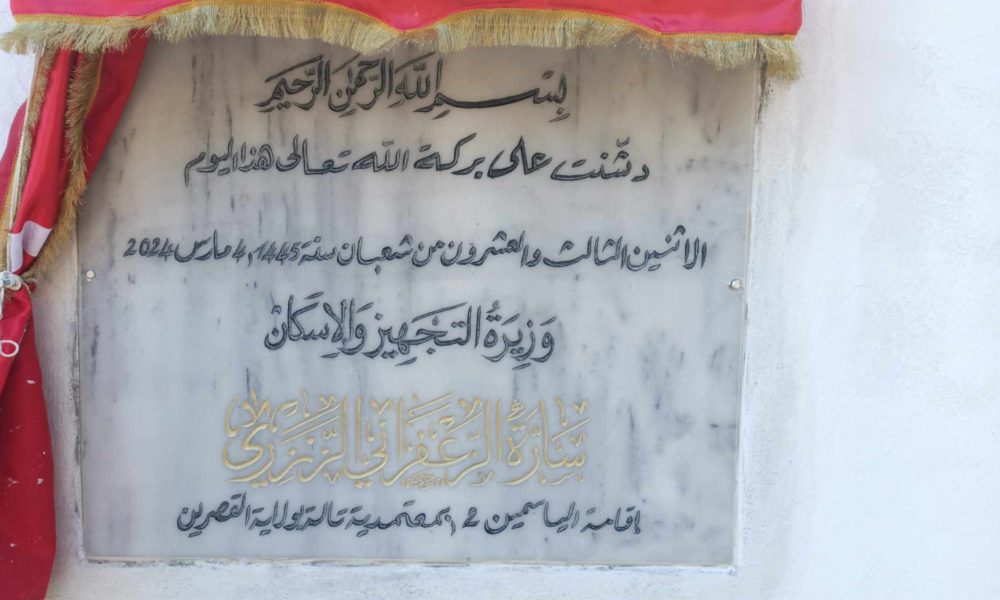 بِسْمِ اللَّهِ الرَّحْمَنِ الرَّحِيمِ
دشّنت على بركة الله تعالى هذا اليوم
الاثنين الثالث والعشرون من شعبان سنة 1445, 4 مارس 2024
وَزِيرَةُ التَجْهِيز وَالإِسكَان
سَارَّة الزَّعْفَرَانِي الزَّنزَرِي
إقامة الياسمين 2, بمعتمدية تالة بولاية القصرين